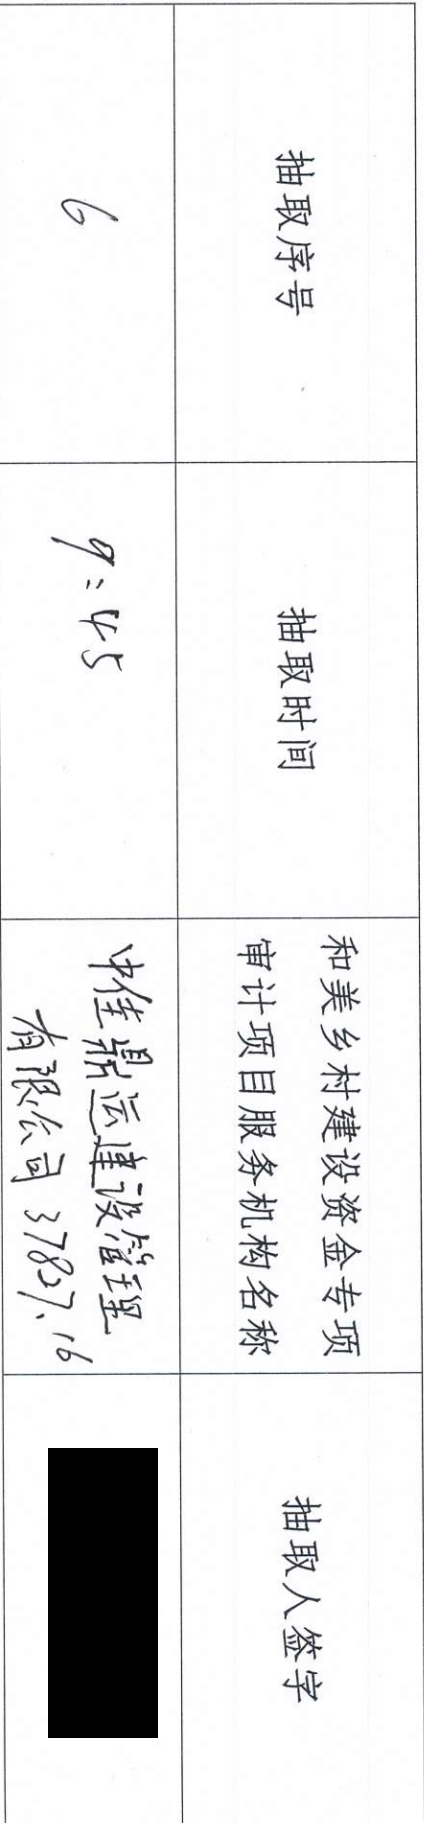 抽取序号
抽取时间
和美乡村建设资金专项
审计项目服务机构名称
抽取人签字
6
9:45
中佳鼎运建设管理
有限公司 37827.16